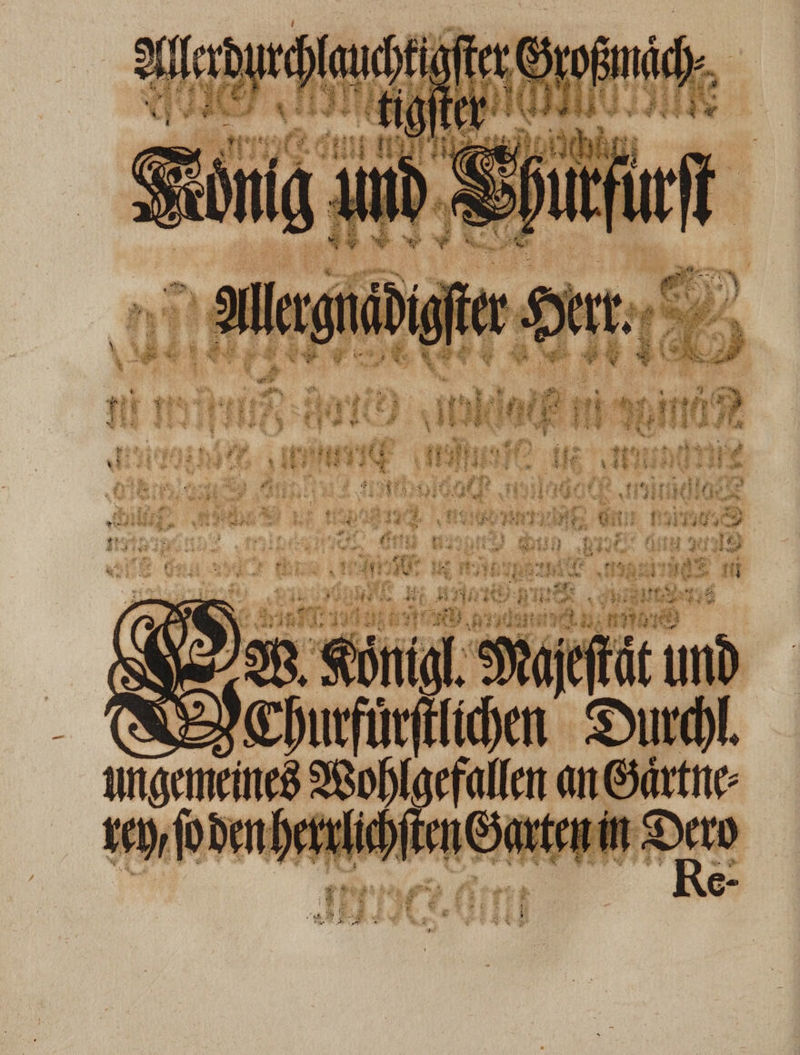 Allerdurchlauchtigſter Großmaͤch⸗
tigſter
Koͤnig und Churfuͤrſt
Allergnaͤdigſter Herr.
EW. Koͤnigl. Majeſtaͤt und
Churfuͤrſtlichen Durchl.
ungemeines Wohlgefallen an Gaͤrtne⸗
rey, ſo den herrlichſten Garten in Dero
Re-